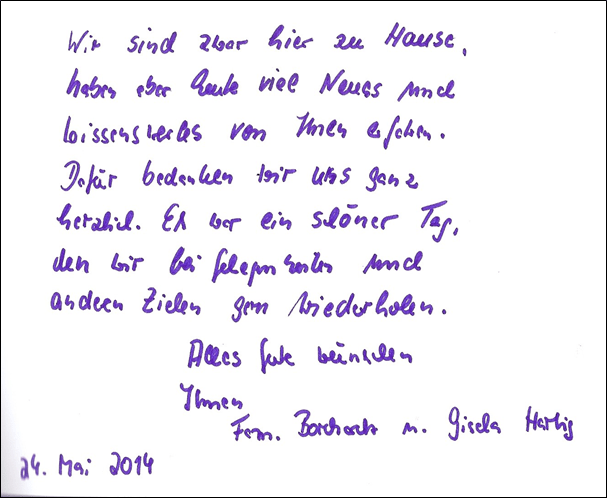 Wir sind zwar hier zu Hause,
haben aber heute viel Neues und
Wissenswertes von Ihnen erfahren.
Dafür bedanken wir uns ganz
herzlich. Es war ein schöner Tag,
den wir bei Gelegenheiten und
anderen Zielen gern wiederholen.
Alles Gute wünschen
Ihnen
Fam. u. Gisela Hartig
24. Mai 2014